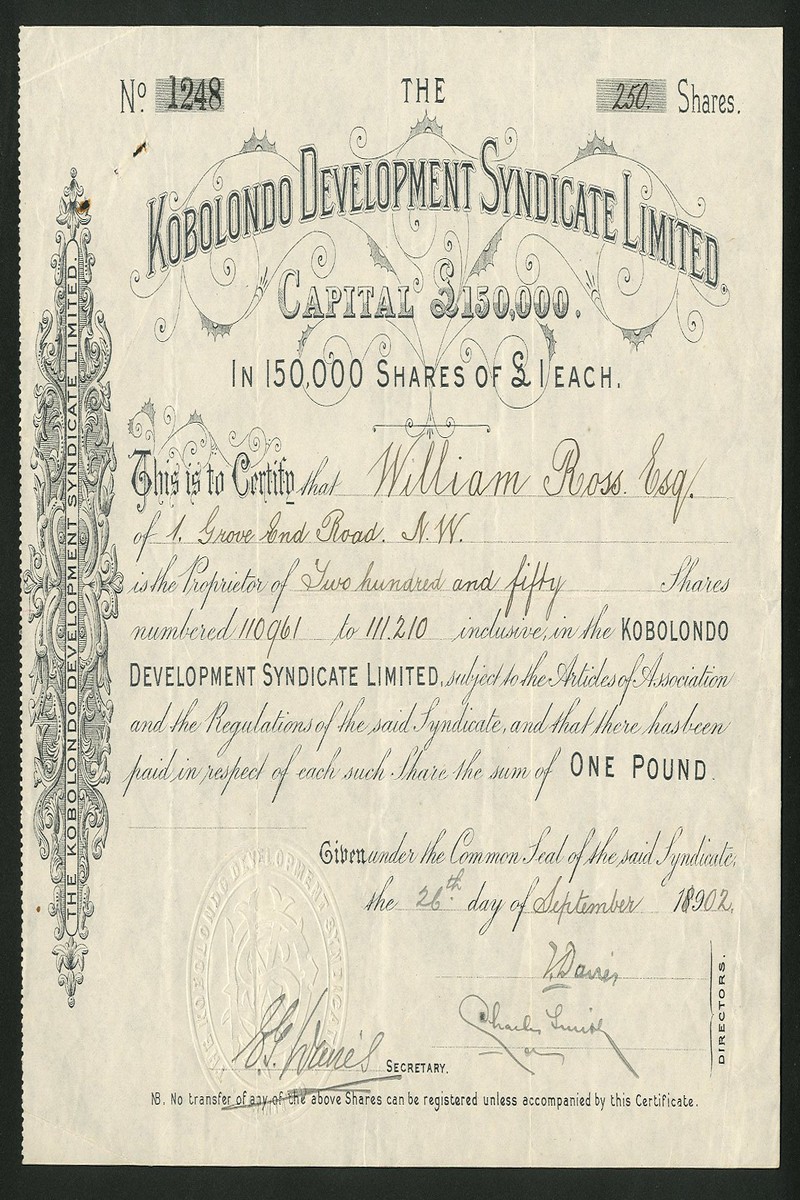 No. 1248 THE 250. Shares.
KOBOLONDO DEVELOPMENT SYNDICATE LIMITED.
CAPITAL £150,000.
IN 150,000 SHARES OF £1 EACH.
This is to Certify that William Ross. Esq.
of 1. Grove End Road. N.W.
is the Proprietor of Two hundred and fifty Shares
numbered 110961 to 111.210 inclusive, in the KOBOLONDO
DEVELOPMENT SYNDICATE LIMITED, subject to the Articles of Association
and the Regulations of the said Syndicate, and that there has been
paid in respect of each such Share the sum of ONE POUND.
Given under the Common Seal of the said Syndicate,
the 26th. day of September 1902.
Davies
Charles Smith
DIRECTORS.
Davies SECRETARY.
NB. No transfer of any of the above Shares can be registered unless accompanied by this Certificate.
THE KOBOLONDO DEVELOPMENT SYNDICATE LIMITED
THE KOBOLONDO DEVELOPMENT SYNDICATE